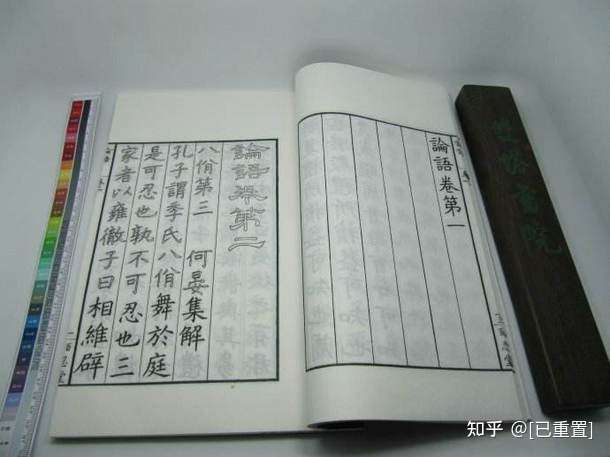 論語卷第一
論語卷第二
八佾第三 何晏集解
孔子謂季氏八佾舞於庭
是可忍也孰不可忍也三
家者以雍徹子曰相維辟
書院
知乎 @[已重置]